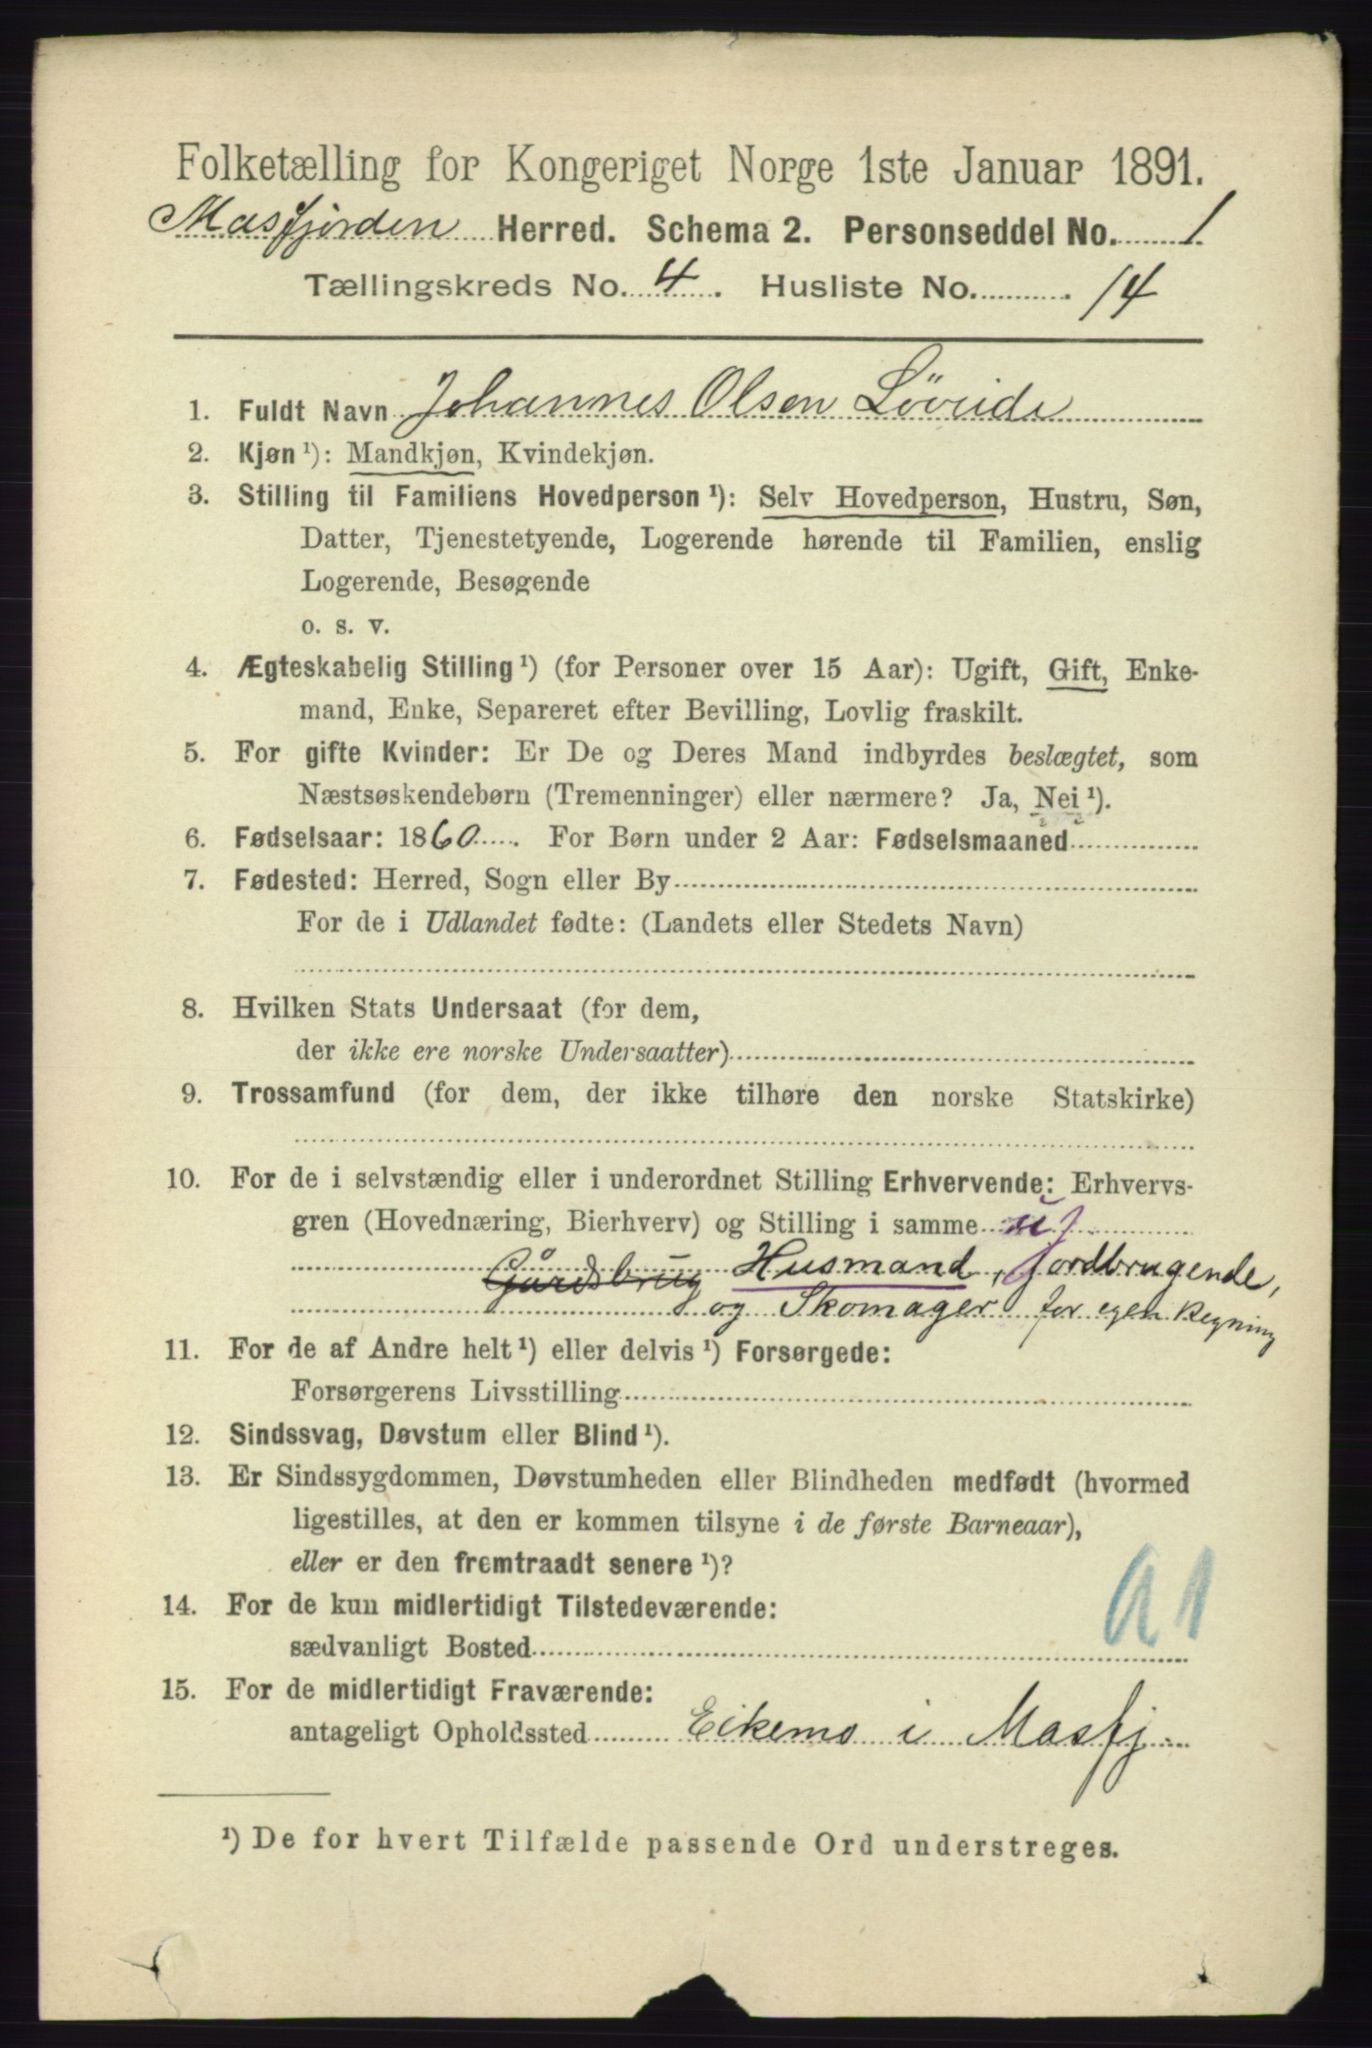 Folketælling for Kongeriget Norge 1ste Januar 1891.
Masfjorden Herred. Schema 2. Personseddel No. 1
Tællingskreds No. 4. Husliste No. 14
1. Fuldt Navn Johannes Olsen Løvlide
2. Kjøn ¹): Mandkjøn, Kvindekjøn.
3. Stilling til Familiens Hovedperson ¹): Selv Hovedperson, Hustru, Søn,
Datter, Tjenestetyende, Logerende hørende til Familien, enslig
Logerende, Besøgende
o. s. v.
4. Ægteskabelig Stilling ¹) (for Personer over 15 Aar): Ugift, Gift, Enke-
mand, Enke, Separeret efter Bevilling, Lovlig fraskilt.
5. For gifte Kvinder: Er De og Deres Mand indbyrdes beslægtet, som
Næstsøskendebørn (Tremenninger) eller nærmere? Ja, Nei ¹).
6. Fødselsaar: 1860. For Børn under 2 Aar: Fødselsmaaned
7. Fødested: Herred, Sogn eller By
For de i Udlandet fødte: (Landets eller Stedets Navn)
8. Hvilken Stats Undersaat (for dem,
der ikke ere norske Undersaatter)
9. Trossamfund (for dem, der ikke tilhøre den norske Statskirke)
10. For de i selvstændig eller i underordnet Stilling Erhvervende: Erhvervs-
gren (Hovednæring, Bierhverv) og Stilling i samme
Gårdsbrug Husmand, Jordbrugende,
og Skomager for egen Regning
11. For de af Andre helt ¹) eller delvis ¹) Forsørgede:
Forsørgerens Livsstilling
12. Sindssvag, Døvstum eller Blind ¹).
13. Er Sindssygdommen, Døvstumheden eller Blindheden medfødt (hvormed
ligestilles, at den er kommen tilsyne i de første Barneaar),
eller er den fremtraadt senere ¹)?
14. For de kun midlertidigt Tilstedeværende:
sædvanligt Bosted
15. For de midlertidigt Fraværende:
antageligt Opholdssted Eikemo i Masfj.
¹) De for hvert Tilfælde passende Ord understreges.